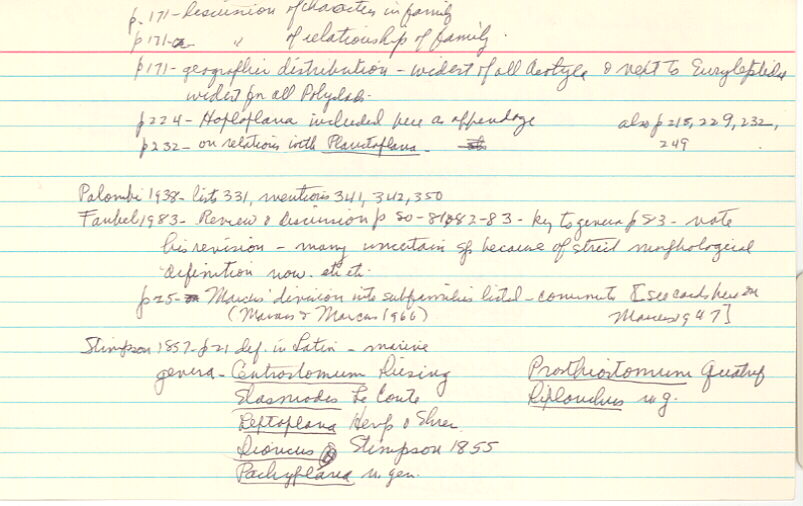 p. 171 - Discussion of characters in family
p171 - " of relationship of family.
p171 - geographic distribution - widest of all Acotyle & next to Euryleptidae
widest for all Polyclads.
p224 - Hoploplana included here as appendage also p 215, 229, 232,
p232 - on relations with Planctoplana. 249
Palombi 1938 - lists 331, mentions 341, 342, 350
Faubel 1983 - Review & Discussion p 80-81, 82-83 - key to genera p 83 - note
his revision - many uncertain sp because of strict morphological
definition now. etc etc.
p25 - Marcus' division into subfamilies listed - comments [see cards here on
(Marcus & Marcus 1966) Marcus 1947]
Stimpson 1857 - p21 def. in Latin - marine
genera - Centrostomum Diesing Prosthiostomum Quatref
Elasmodes Le Conte Diplonchus n.g.
Leptoplana Hemp & Ehren
Dioncus Stimpson 1855
Pachyplana n. gen.